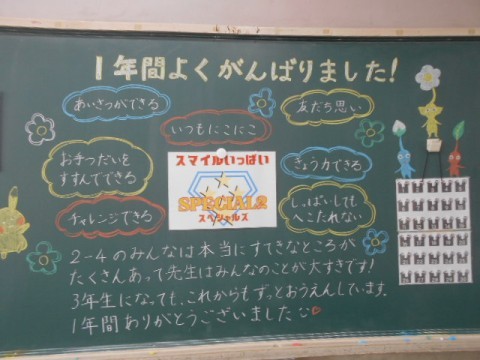 1年間よくがんばりました!
あいさつができる
友だち思い
いつもにこにこ
お手つだいを
すすんでできる
スマイルいっぱい
SPECIALS
スペシャルズ
きょう力できる
チャレンジできる
しっぱいしても
へこたれない
2-4のみんなは本当にすてきなところが
たくさんあって先生はみんなのことが大すきです!
3年生になっても、これからもずっとおうえんしています。
1年間ありがとうございました